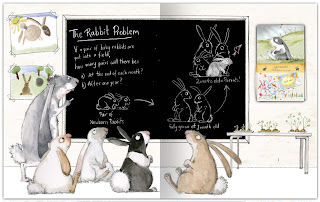 The Rabbit Problem
If a pair of baby rabbits are
put into a field,
how many pairs will there be:
a) At the end of each month?
b) After one year?
Pair of
Newborn Rabbits
2 months old = Parents!
Fully grown at 1 month old